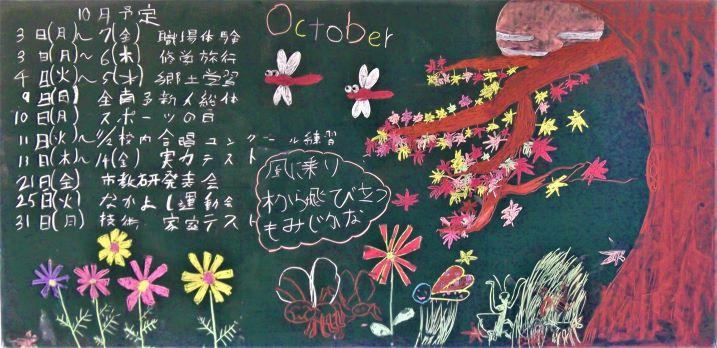 10月予定
October
3日(月)~7(金) 職場体験
3日(月)~6(木) 修学旅行
4日(火)~5(水) 郷土学習
9日(日) 全員予新人総体
10日(月) スポーツの日
11日(火)~ 校内合唱コンクール練習
11日(木)~14(金) 実力テスト
21日(金) 市教研発表会
25日(火) だかよし運動会
31日(月) 技術・家庭テスト
風に乗り
わら飛びきつ
もみじかな